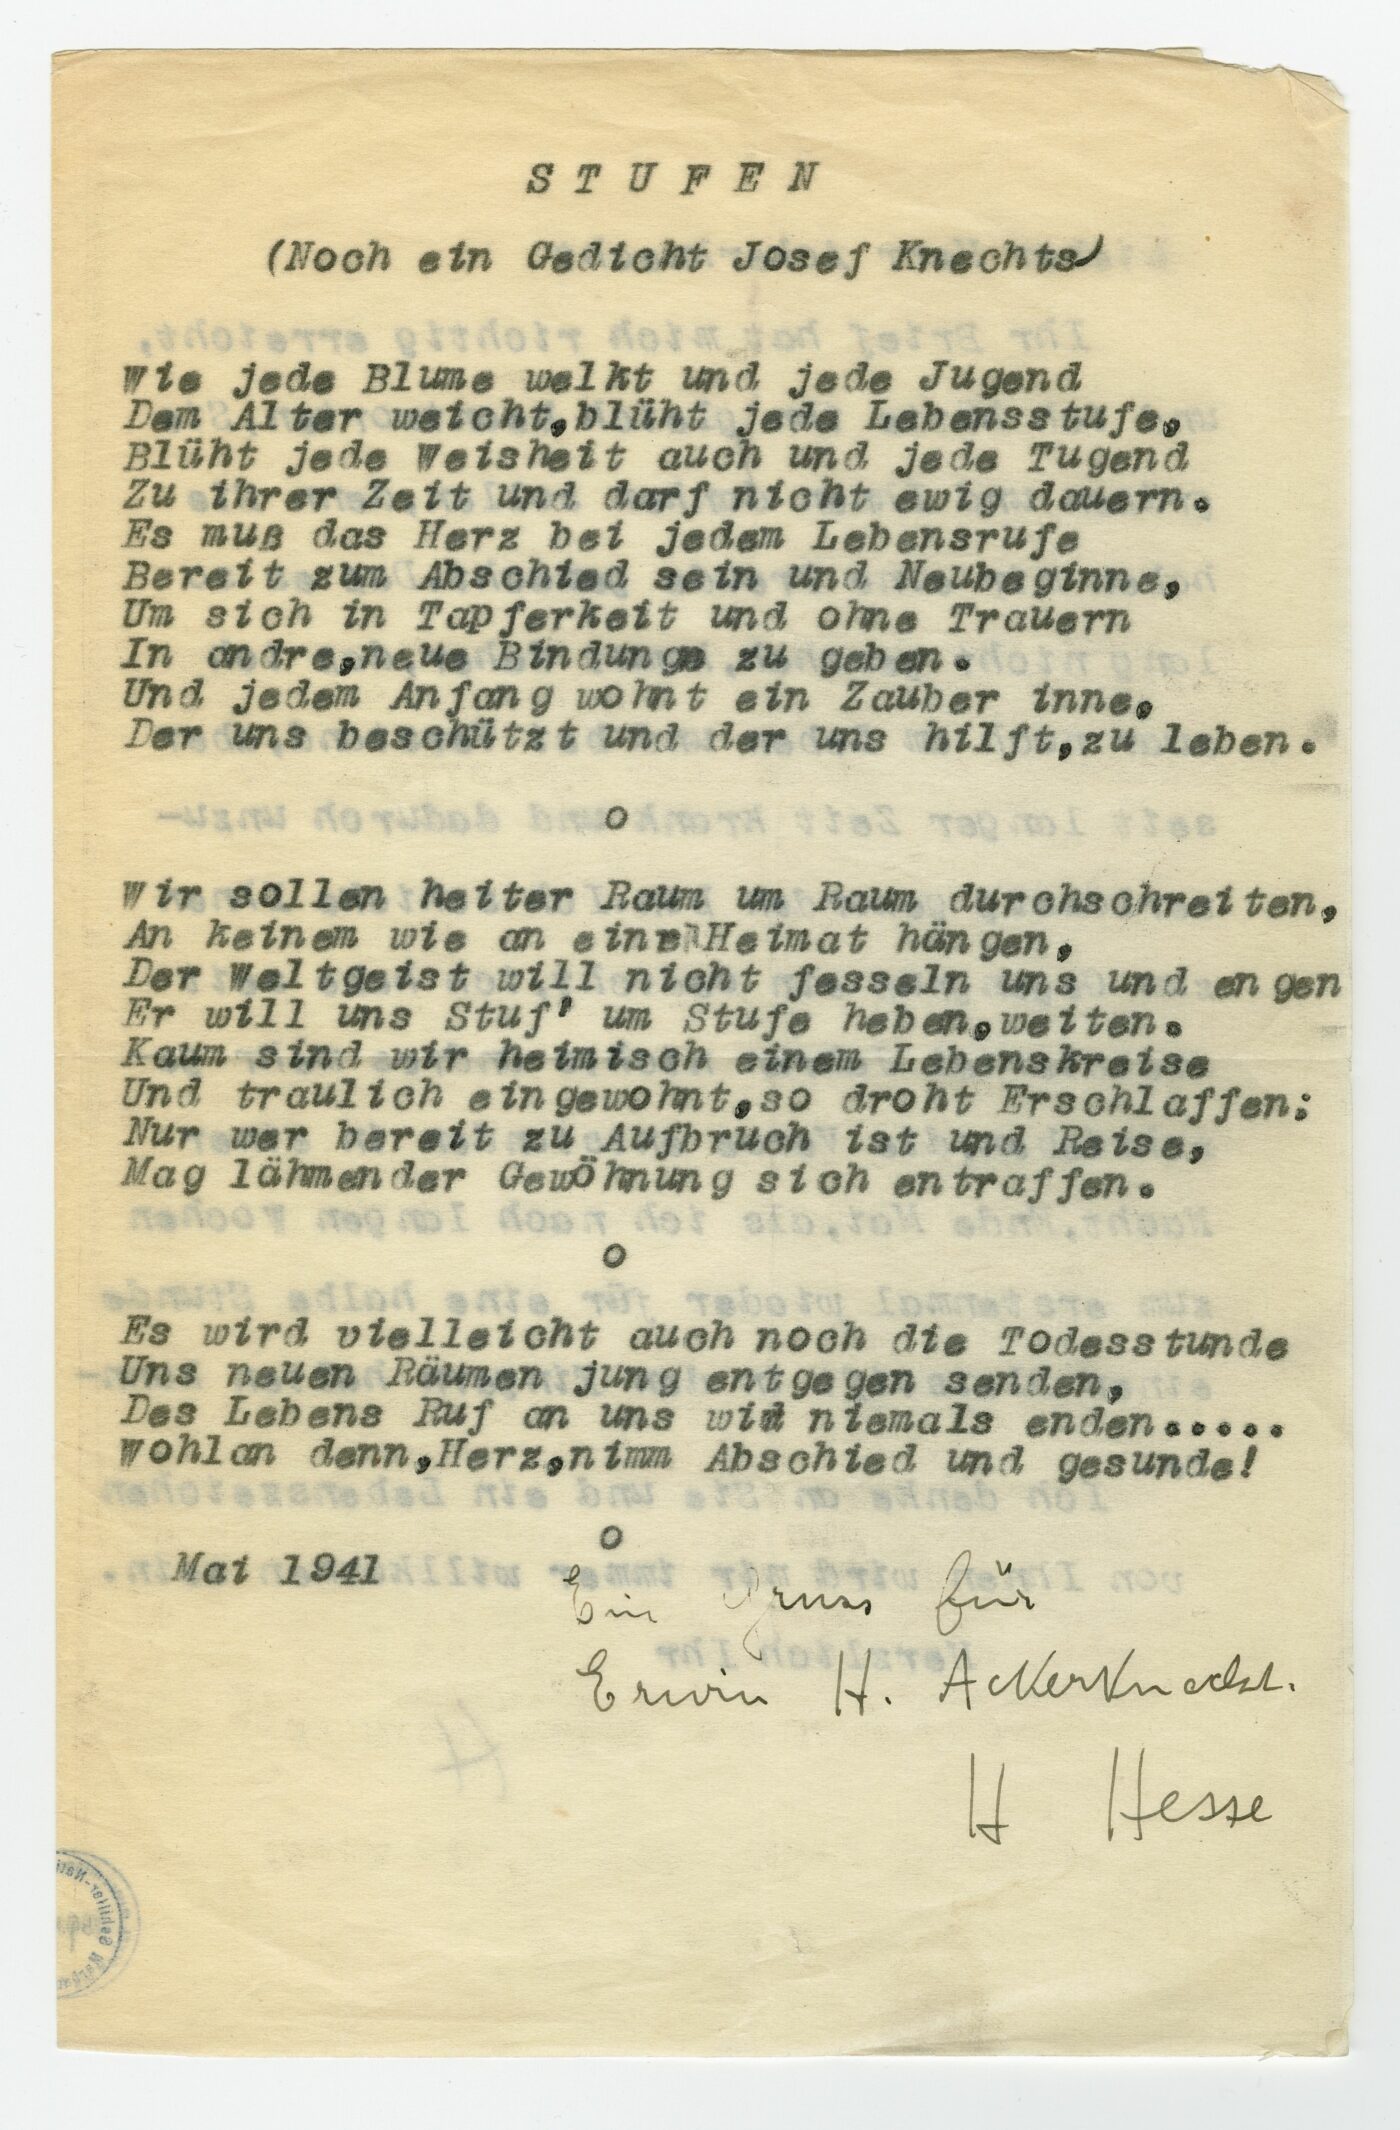 STUFEN
(Noch ein Gedicht Josef Knechts)
Wie jede Blume welkt und jede Jugend
Dem Alter weicht,blüht jede Lebensstufe,
Blüht jede Weisheit auch und jede Tugend
Zu ihrer Zeit und darf nicht ewig dauern.
Es muß das Herz bei jedem Lebensrufe
Bereit zum Abschied sein und Neubeginne,
Um sich in Tapferkeit und ohne Trauern
In andre,neue Bindunge zu geben.
Und jedem Anfang wohnt ein Zauber inne,
Der uns beschützt und der uns hilft,zu leben.
o
Wir sollen heiter Raum um Raum durchschreiten,
An keinem wie an einer Heimat hängen,
Der Weltgeist will nicht fesseln uns und engen
Er will uns Stuf' um Stufe heben,weiten.
Kaum sind wir heimisch einem Lebenskreise
Und traulich eingewohnt,so droht Erschlaffen:
Nur wer bereit zu Aufbruch ist und Reise,
Mag lähmender Gewöhnung sich entraffen.
o
Es wird vielleicht auch noch die Todesstunde
Uns neuen Räumen jung entgegen senden,
Des Lebens Ruf an uns wird niemals enden.....
Wohlan denn,Herz,nimm Abschied und gesunde!
o
Mai 1941
Ein Gruss für
Erwin H. Ackerknecht.
H Hesse